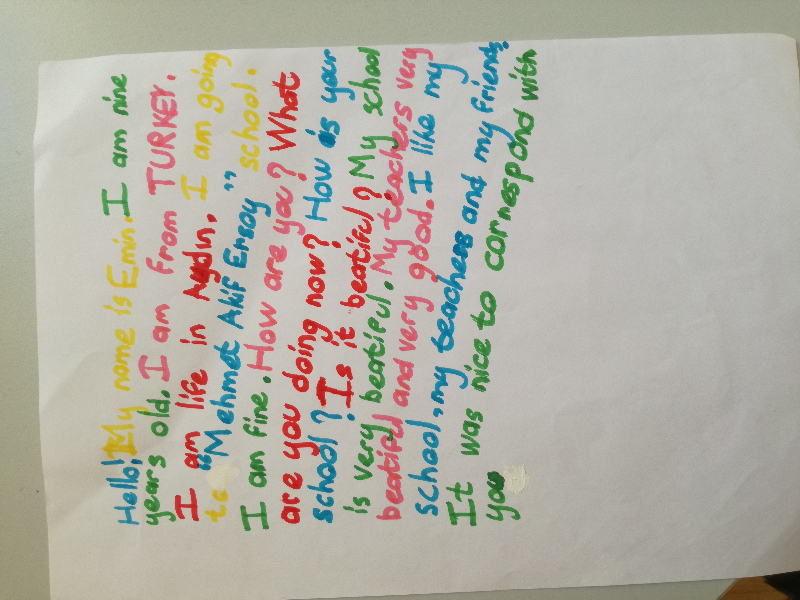 Hello! My name is Emin. I am nine
years old. I am from TURKEY.
I am life in Aydın. I am going
to "Mehmet Akif Ersoy" school.
I am fine. How are you? What
are you doing now? How is your
school? Is it beatiful? My school
is very beatiful. My teachers very
beatiful and very good. I like my
school, my teachers and my friends.
It was nice to correspond with
you